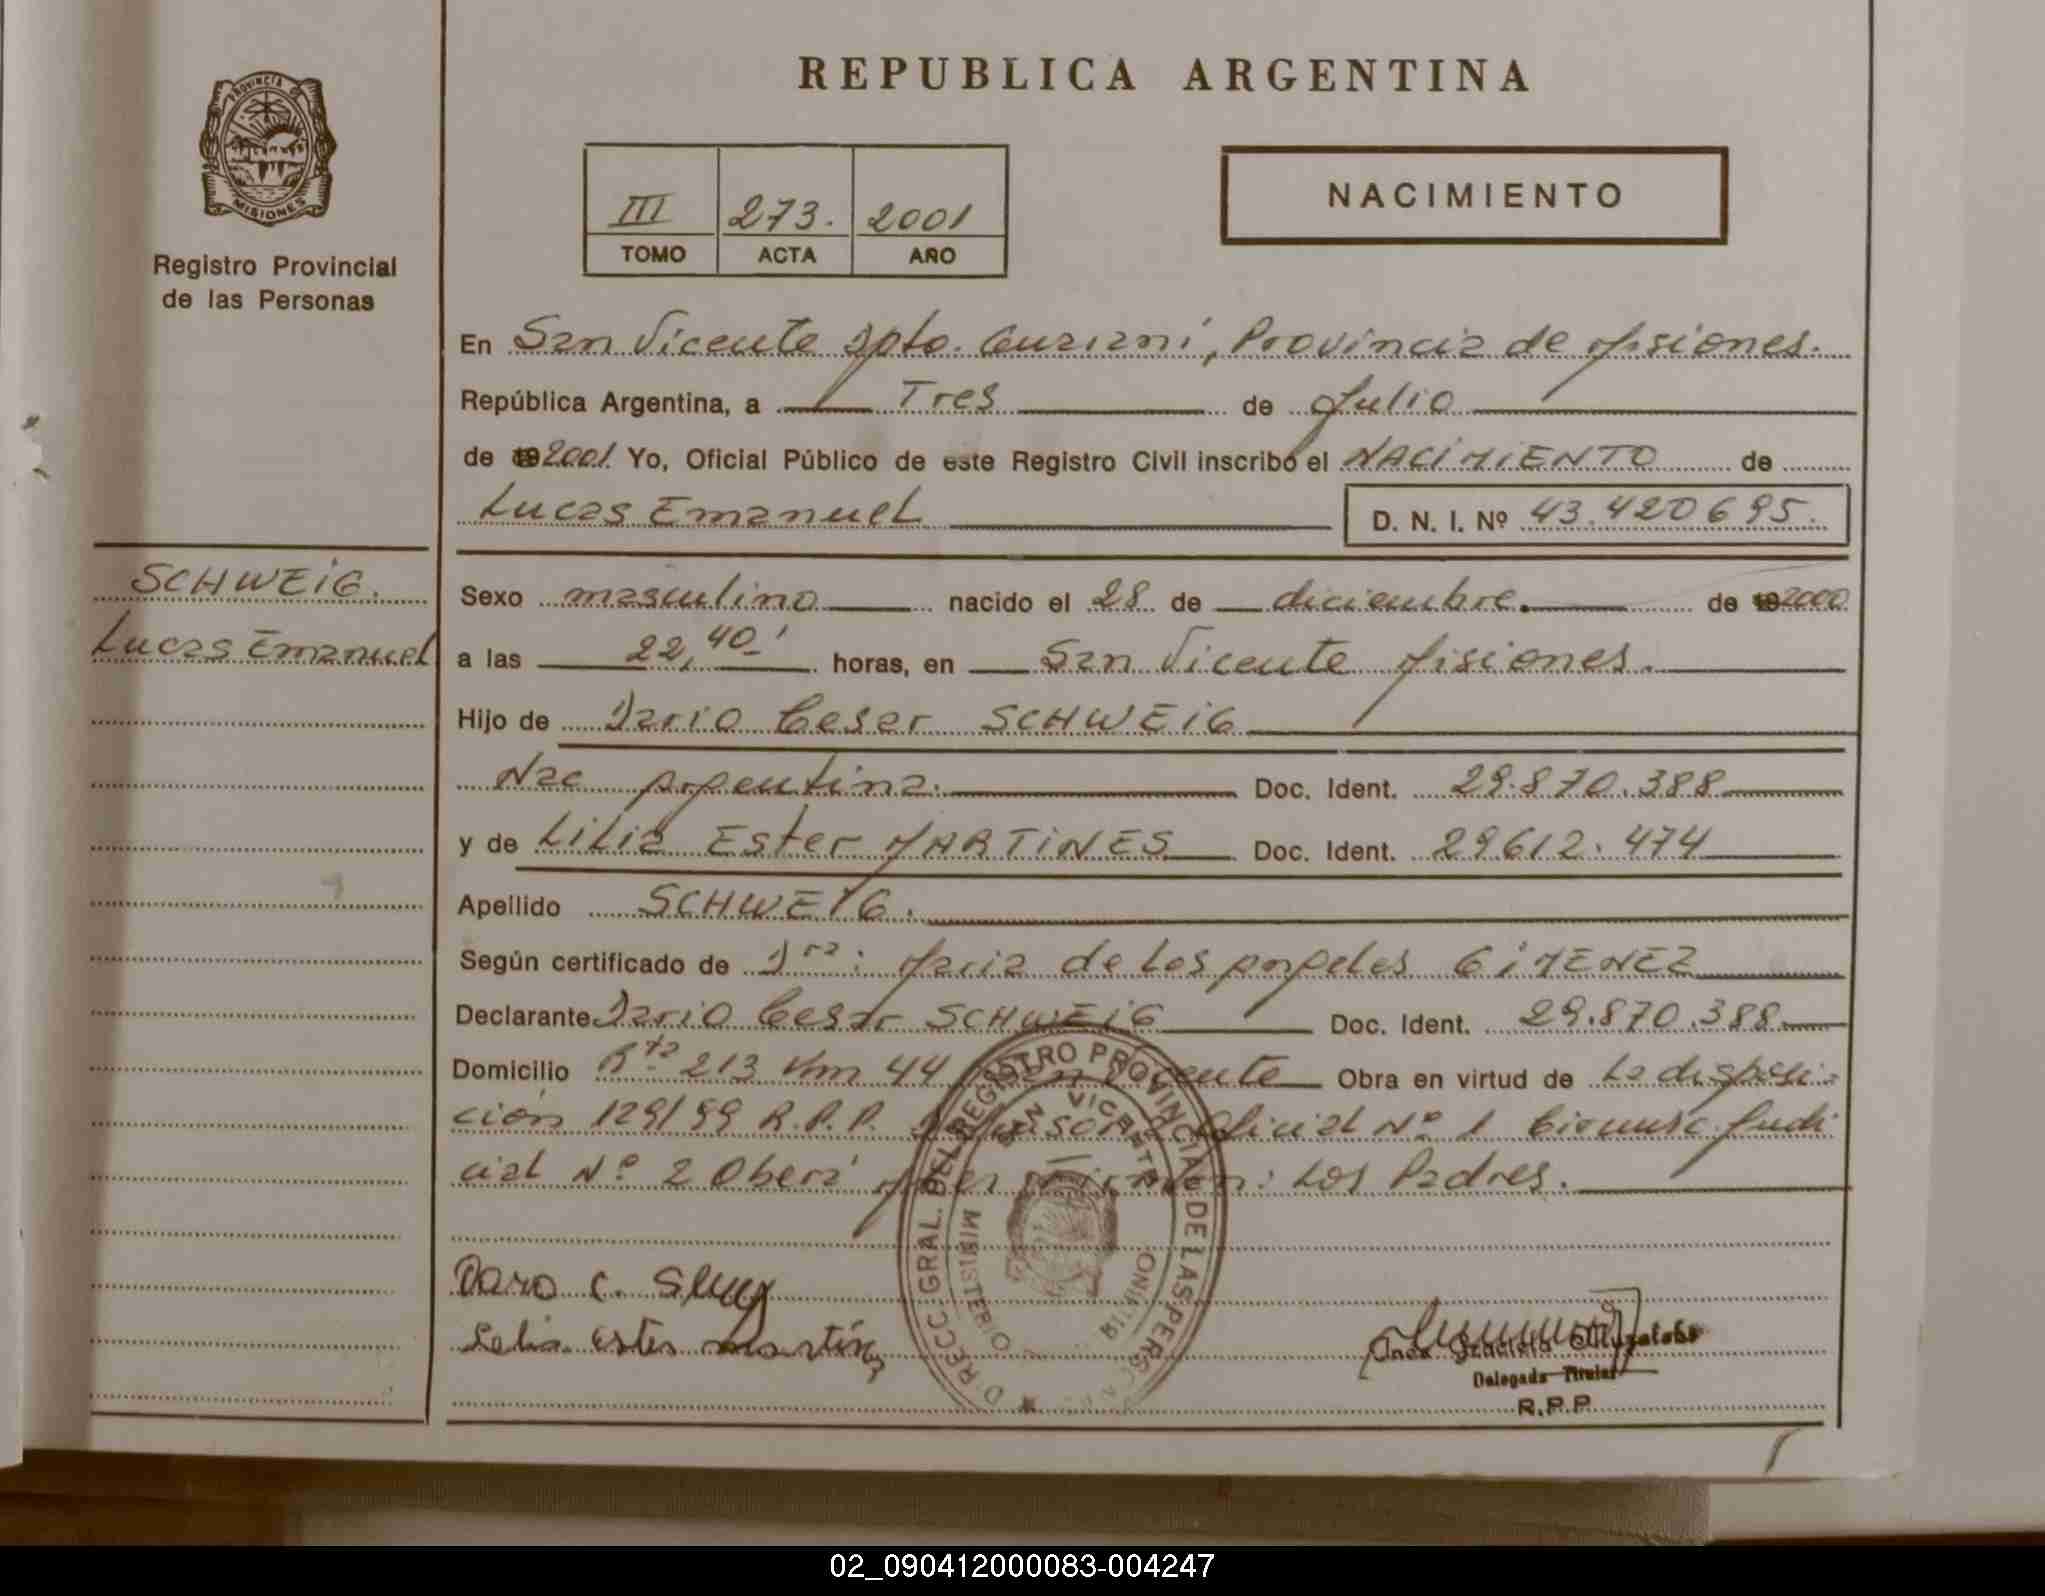 REPUBLICA ARGENTINA
PROVINCIA DE
MISIONES
Registro Provincial
de las Personas
III 273. 2001
TOMO ACTA AÑO
NACIMIENTO
En San Vicente Dpto. Guarani, Provincia de Misiones.
República Argentina, a Tres de Julio
de 192001 Yo, Oficial Público de este Registro Civil inscribo el NACIMIENTO de
Lucas Emanuel D. N. I. Nº 43.420695.
SCHWEIG.
Lucas Emanuel
Sexo masculino nacido el 28 de diciembre. de 192000
a las 22,40' horas, en San Vicente Misiones.
Hijo de Dario Cesar SCHWEIG
Nac Argentina. Doc. Ident. 29.870.388
y de Lilia Ester MARTINES Doc. Ident. 29612.474
Apellido SCHWEIG.
Según certificado de Dra: Maria de Los Angeles GIMENEZ
Declarante Dario Cesar SCHWEIG Doc. Ident. 29.870.388
Domicilio Rta 213 Km 44 San Vicente Obra en virtud de La disposi-
ción 129/99 R.P.P. Oficial Nº 1 Circunsc. Judi
cial Nº 2 Oberá Mnes Firman: Los Padres.
DIRECC. GRAL. DEL REGISTRO PROVINCIAL DE LAS PERSONAS
SAN VICENTE
MINISTERIO
Dario C.
Lilia ester martinez
Graciela
Delegada Titular
R.P.P.
02_090412000083-004247